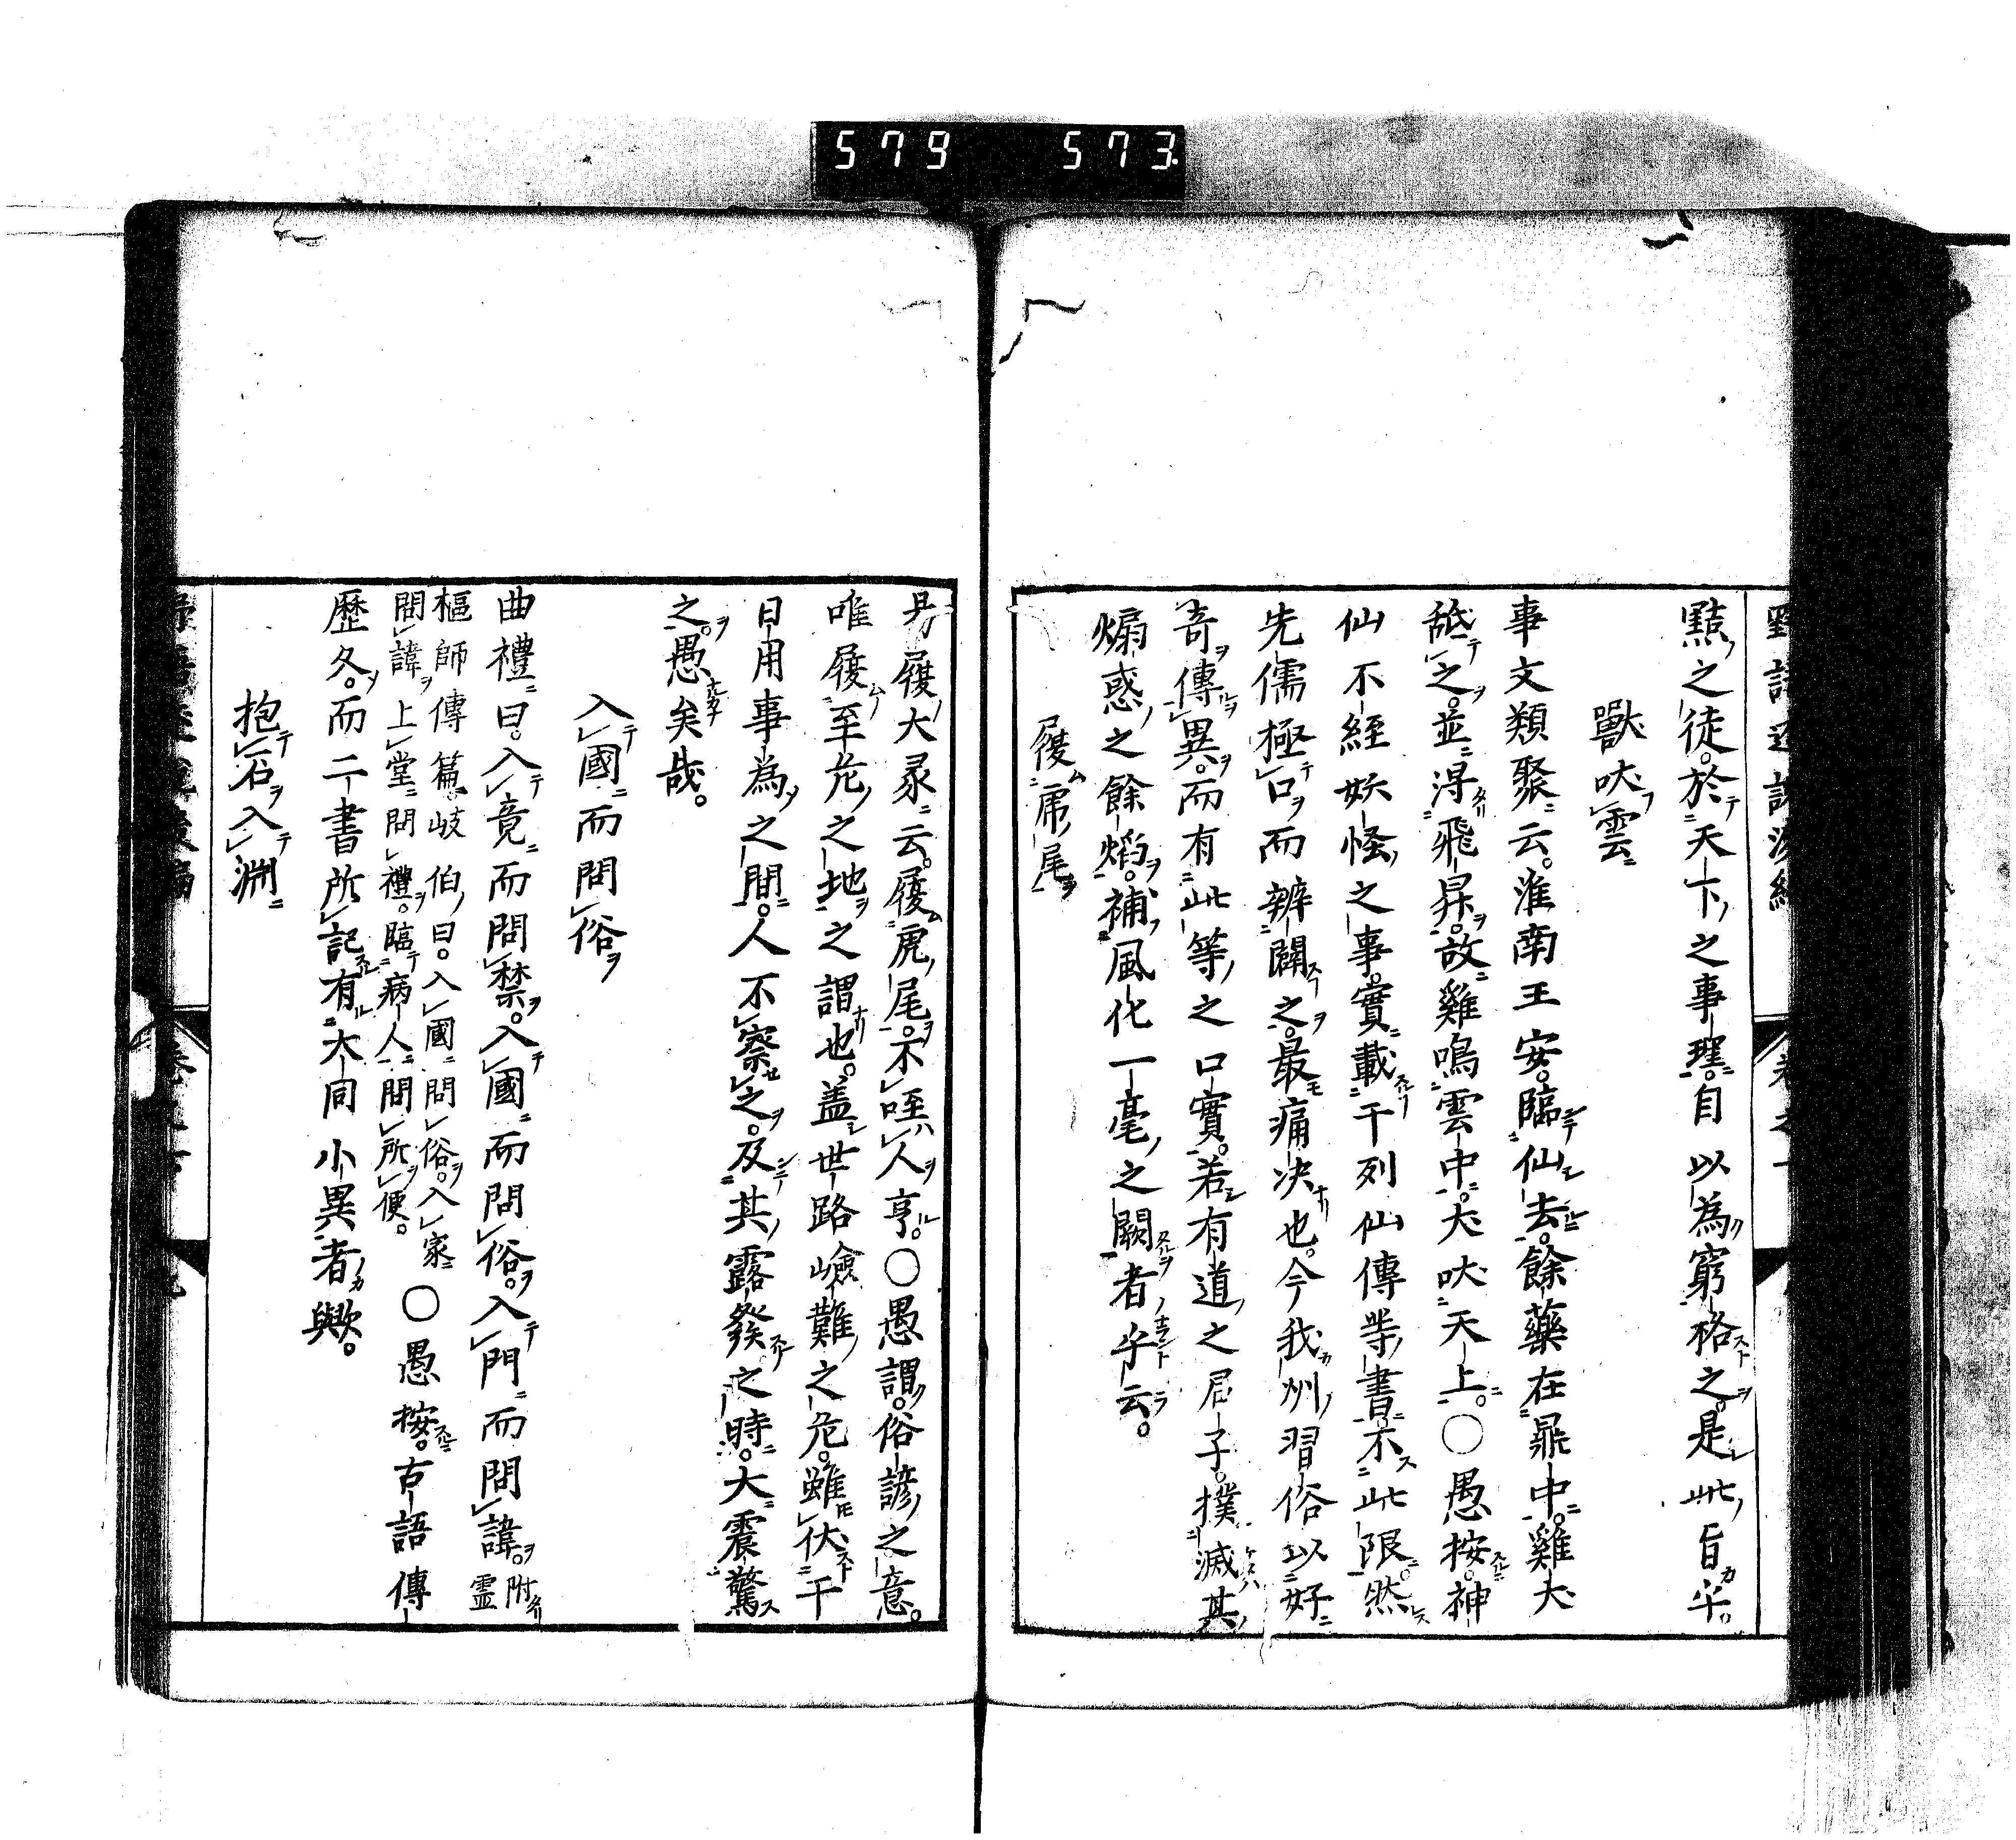 579 573
黠之徒。於天下之事理。自以為窮格之。是此旨乎。
獸吠雲
事文類聚云。淮南王安。臨仙去。餘藥在鼎中。雞犬
舐之。並得飛昇。故雞鳴雲中。犬吠天上。○愚按。神
仙不經妖怪之事。實載于列仙傳等書。不此限。然
先儒極口而辨闢之。最痛决也。今我州習俗以好
奇傳異。而有此等之口實。若有道之君子。撲滅其
煽惑之餘焰。補風化一毫之闕者乎云。
履虎尾
丹履大彖云。履虎尾。不咥人亨。○愚謂。俗諺之意。
唯履至危之地之謂也。蓋世路嶮難之危。雖伏于
日用事為之間。人不察之。及其露發之時。大震驚
之。愚矣哉。
入國而問俗
曲禮曰。入竟而問禁。入國而問俗。入門而問諱。附靈
樞師傳篇。岐伯曰。入國問俗。入家
問諱上堂問禮。臨病人問所便。○愚按。古語傳
歷久。而二書所記有大同小異者歟。
抱石入淵